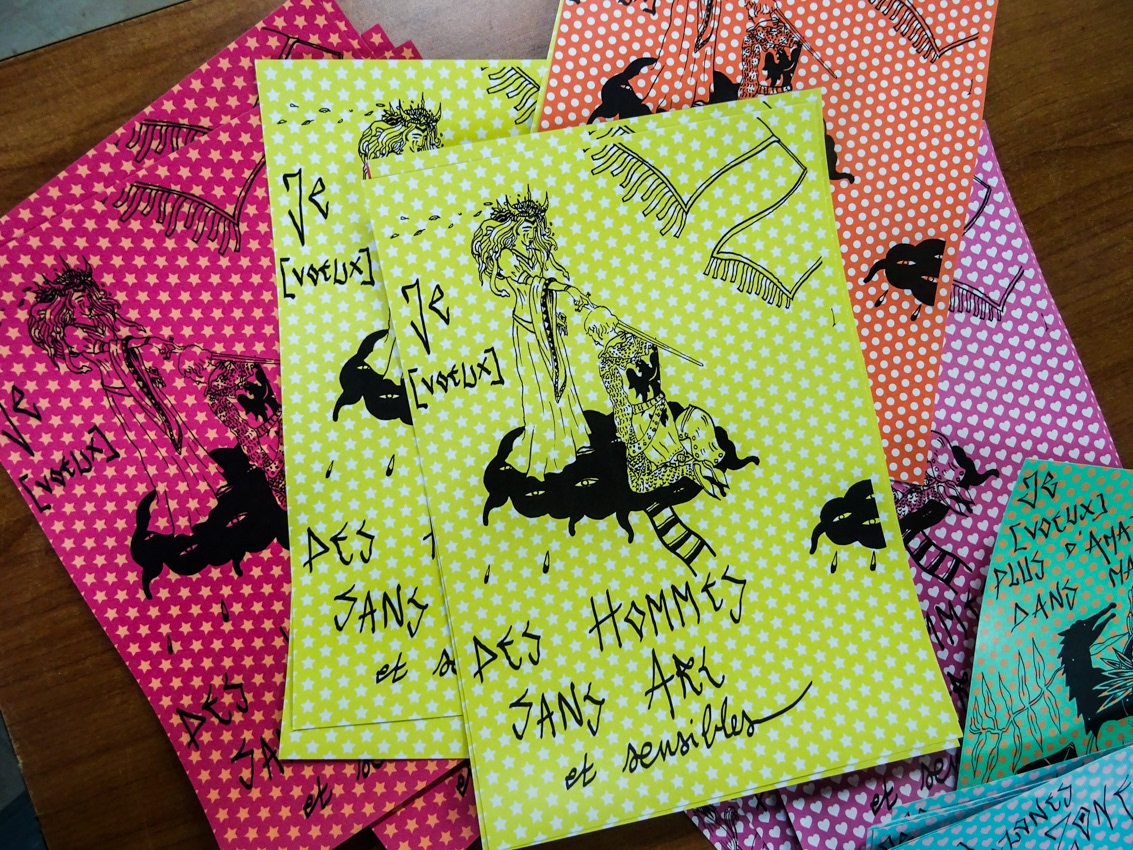 Je
[voeux]
DES HOMMES
SANS ARC
et sensibles
Je
[voeux]
DES
SANS
et se
Je
[voeux]
DES
SA
et s
Je
[voeux]
PLUS D'AMA
MA
DANS
et se